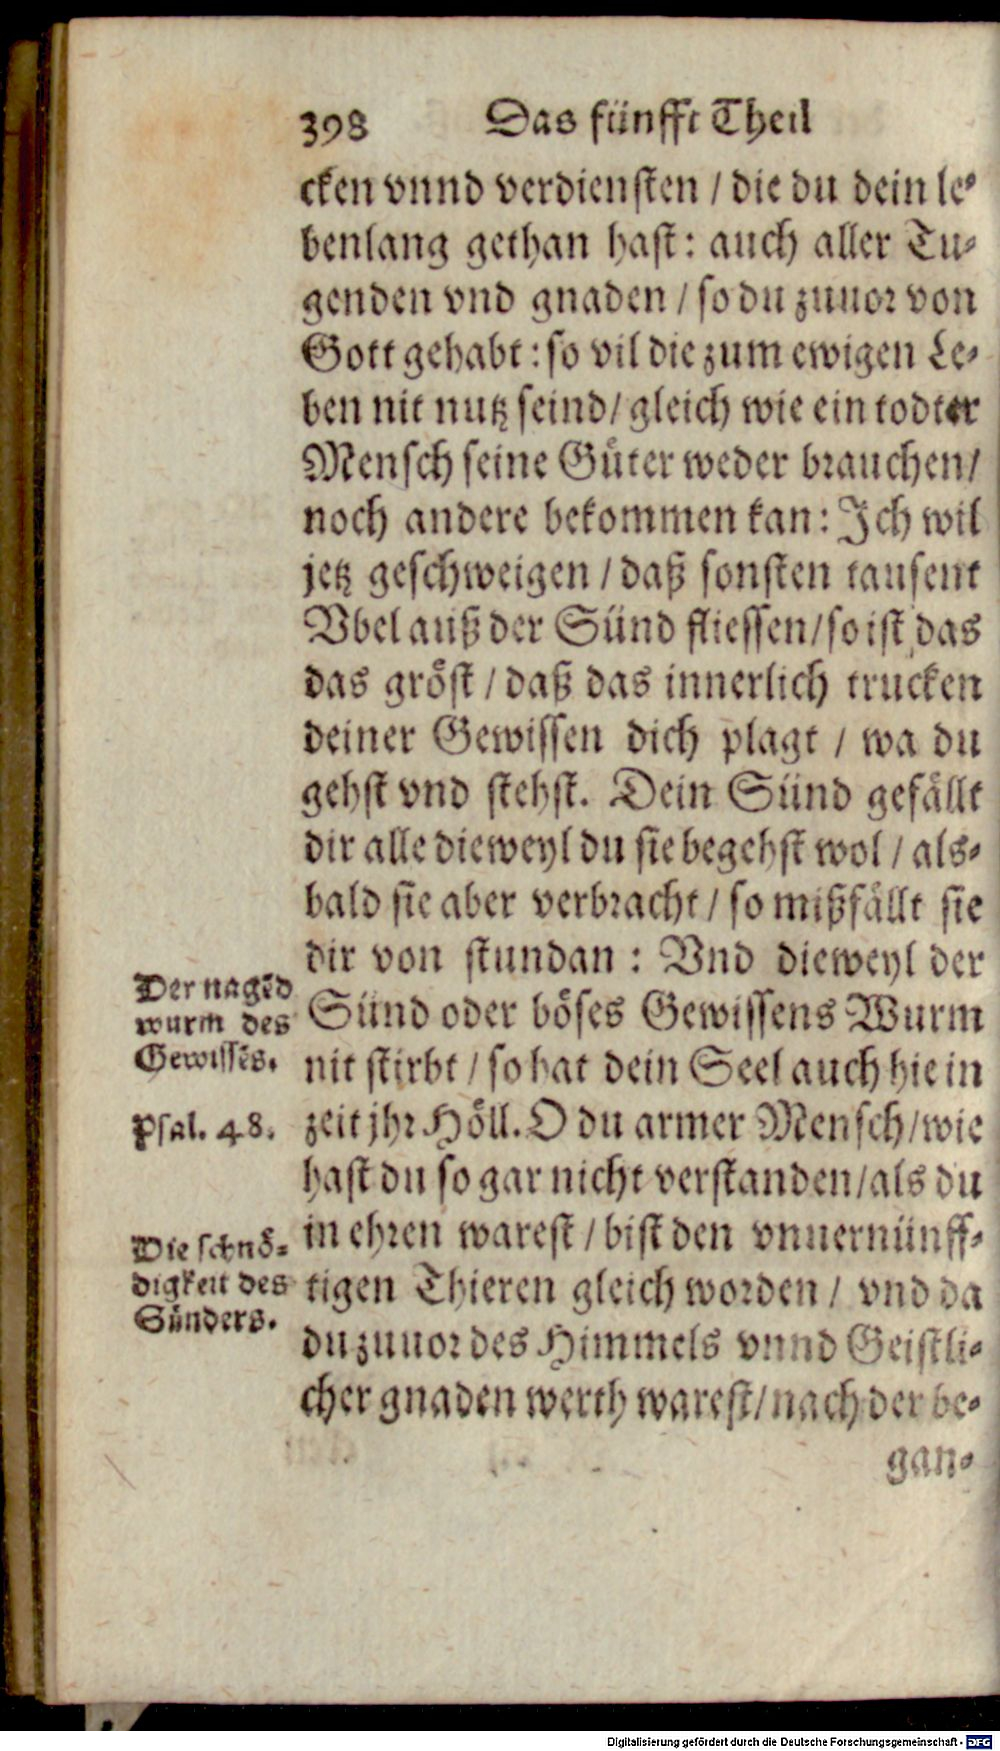 398 Das fünfft Theil
cken vnnd verdiensten / die du dein le⸗
benlang gethan hast: auch aller Tu⸗
genden vnd gnaden / so du zuuor von
Gott gehabt: so vil die zum ewigen Le⸗
ben nit nutz seind / gleich wie ein todter
Mensch seine Güter weder brauchen /
noch andere bekommen kan: Ich wil
jetz geschweigen / daß sonsten tausent
Vbel auß der Sünd fliessen / so ist das
das gröst / daß das innerlich trucken
deiner Gewissen dich plagt / wa du
gehst vnd stehst. Dein Sünd gefällt
dir alle dieweyl du sie begehst wol / als⸗
bald sie aber verbracht / so mißfällt sie
dir von stundan: Vnd dieweyl der
Sünd oder böses Gewissens Wurm
nit stirbt / so hat dein Seel auch hie in
zeit jhr Höll. O du armer Mensch / wie
hast du so gar nicht verstanden / als du
in ehren warest / bist den vnuernünff⸗
tigen Thieren gleich worden / vnd da
du zuuor des Himmels vnnd Geistli⸗
cher gnaden werth warest / nach der be⸗
gan⸗
Der nagēd
wurm des
Gewissēs.
Psal. 48.
Die schnö⸗
digkeit des
Sünders.
Digitalisierung gefördert durch die Deutsche Forschungsgemeinschaft - DFG